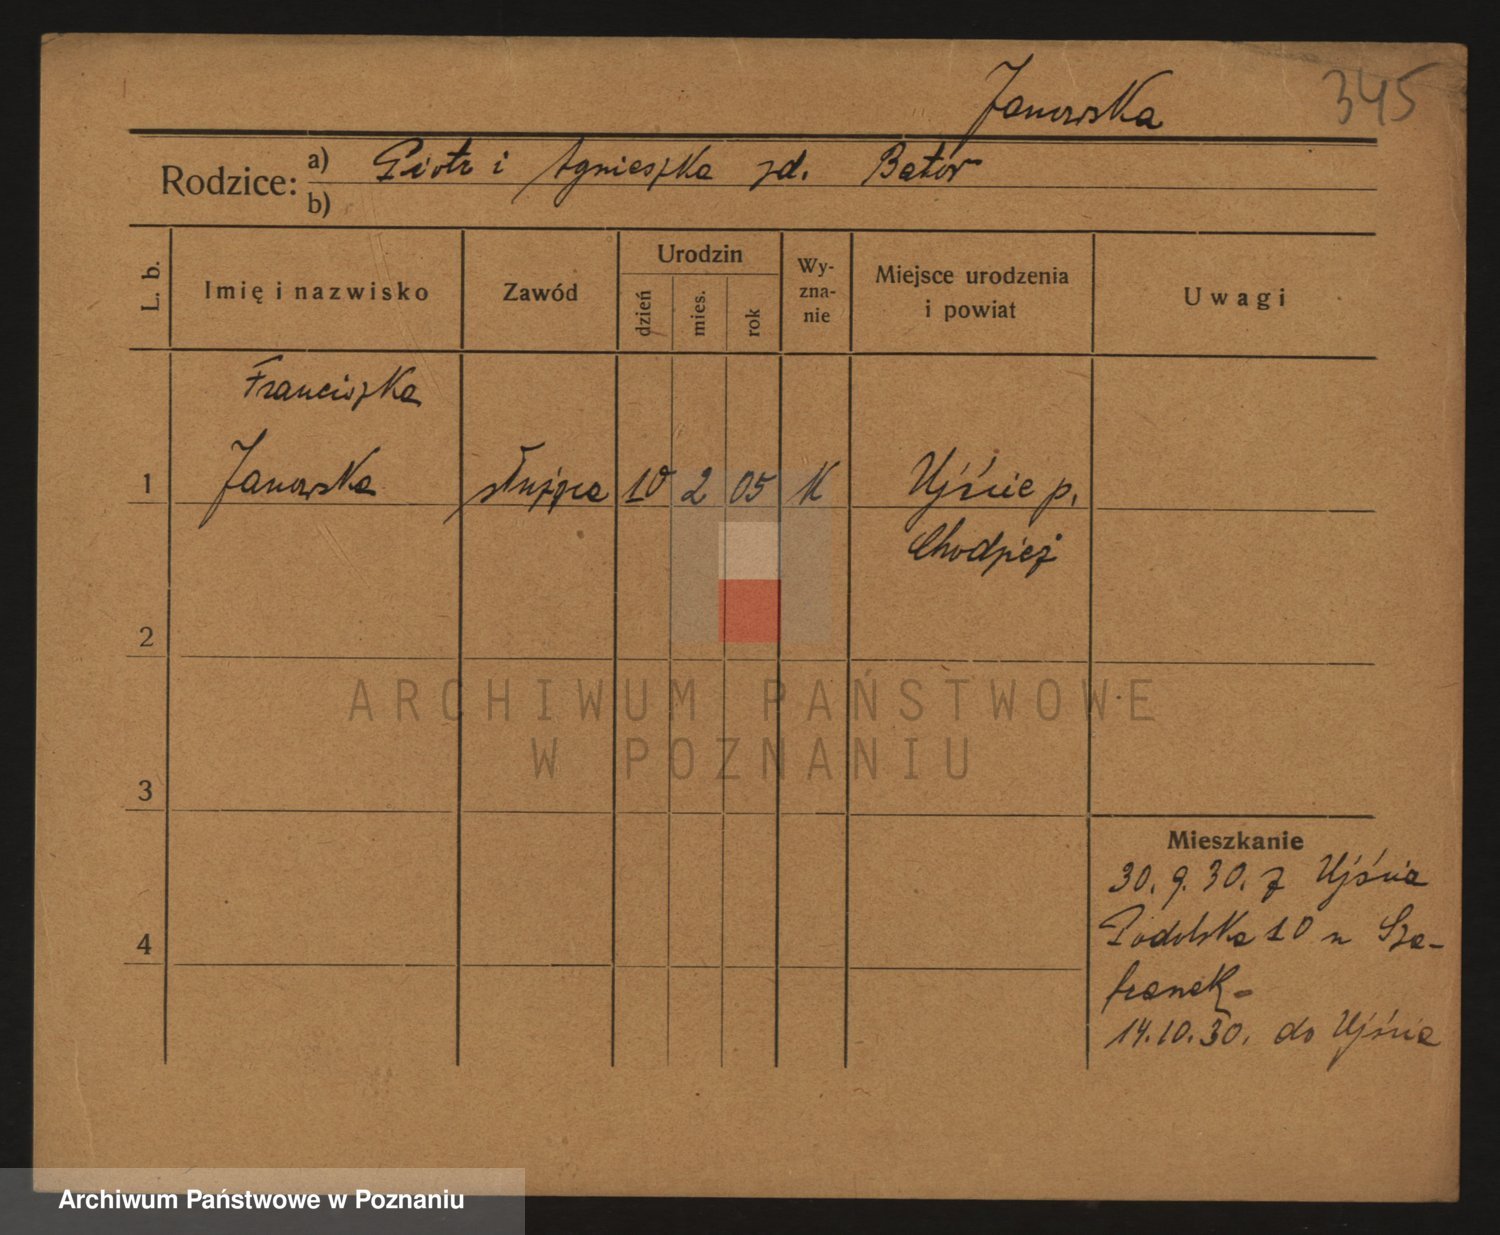 Janowska 345
Rodzice: a) Piotr i Agnieszka zd. Bator
b)
L. b. Imię i nazwisko Zawód Urodzin dzień mies. rok Wy-zna-nie Miejsce urodzenia i powiat Uwagi
Franciszka
1 Janowska służąca 10 2 05 K Ujście p.
Chodzież
2
ARCHIWUM PAŃSTWOWE
W POZNANIU
3
Mieszkanie
30. 9. 30. z Ujścia
4 Podolska 10 u Sza-
franek -
14. 10. 30. do Ujścia
Archiwum Państwowe w Poznaniu